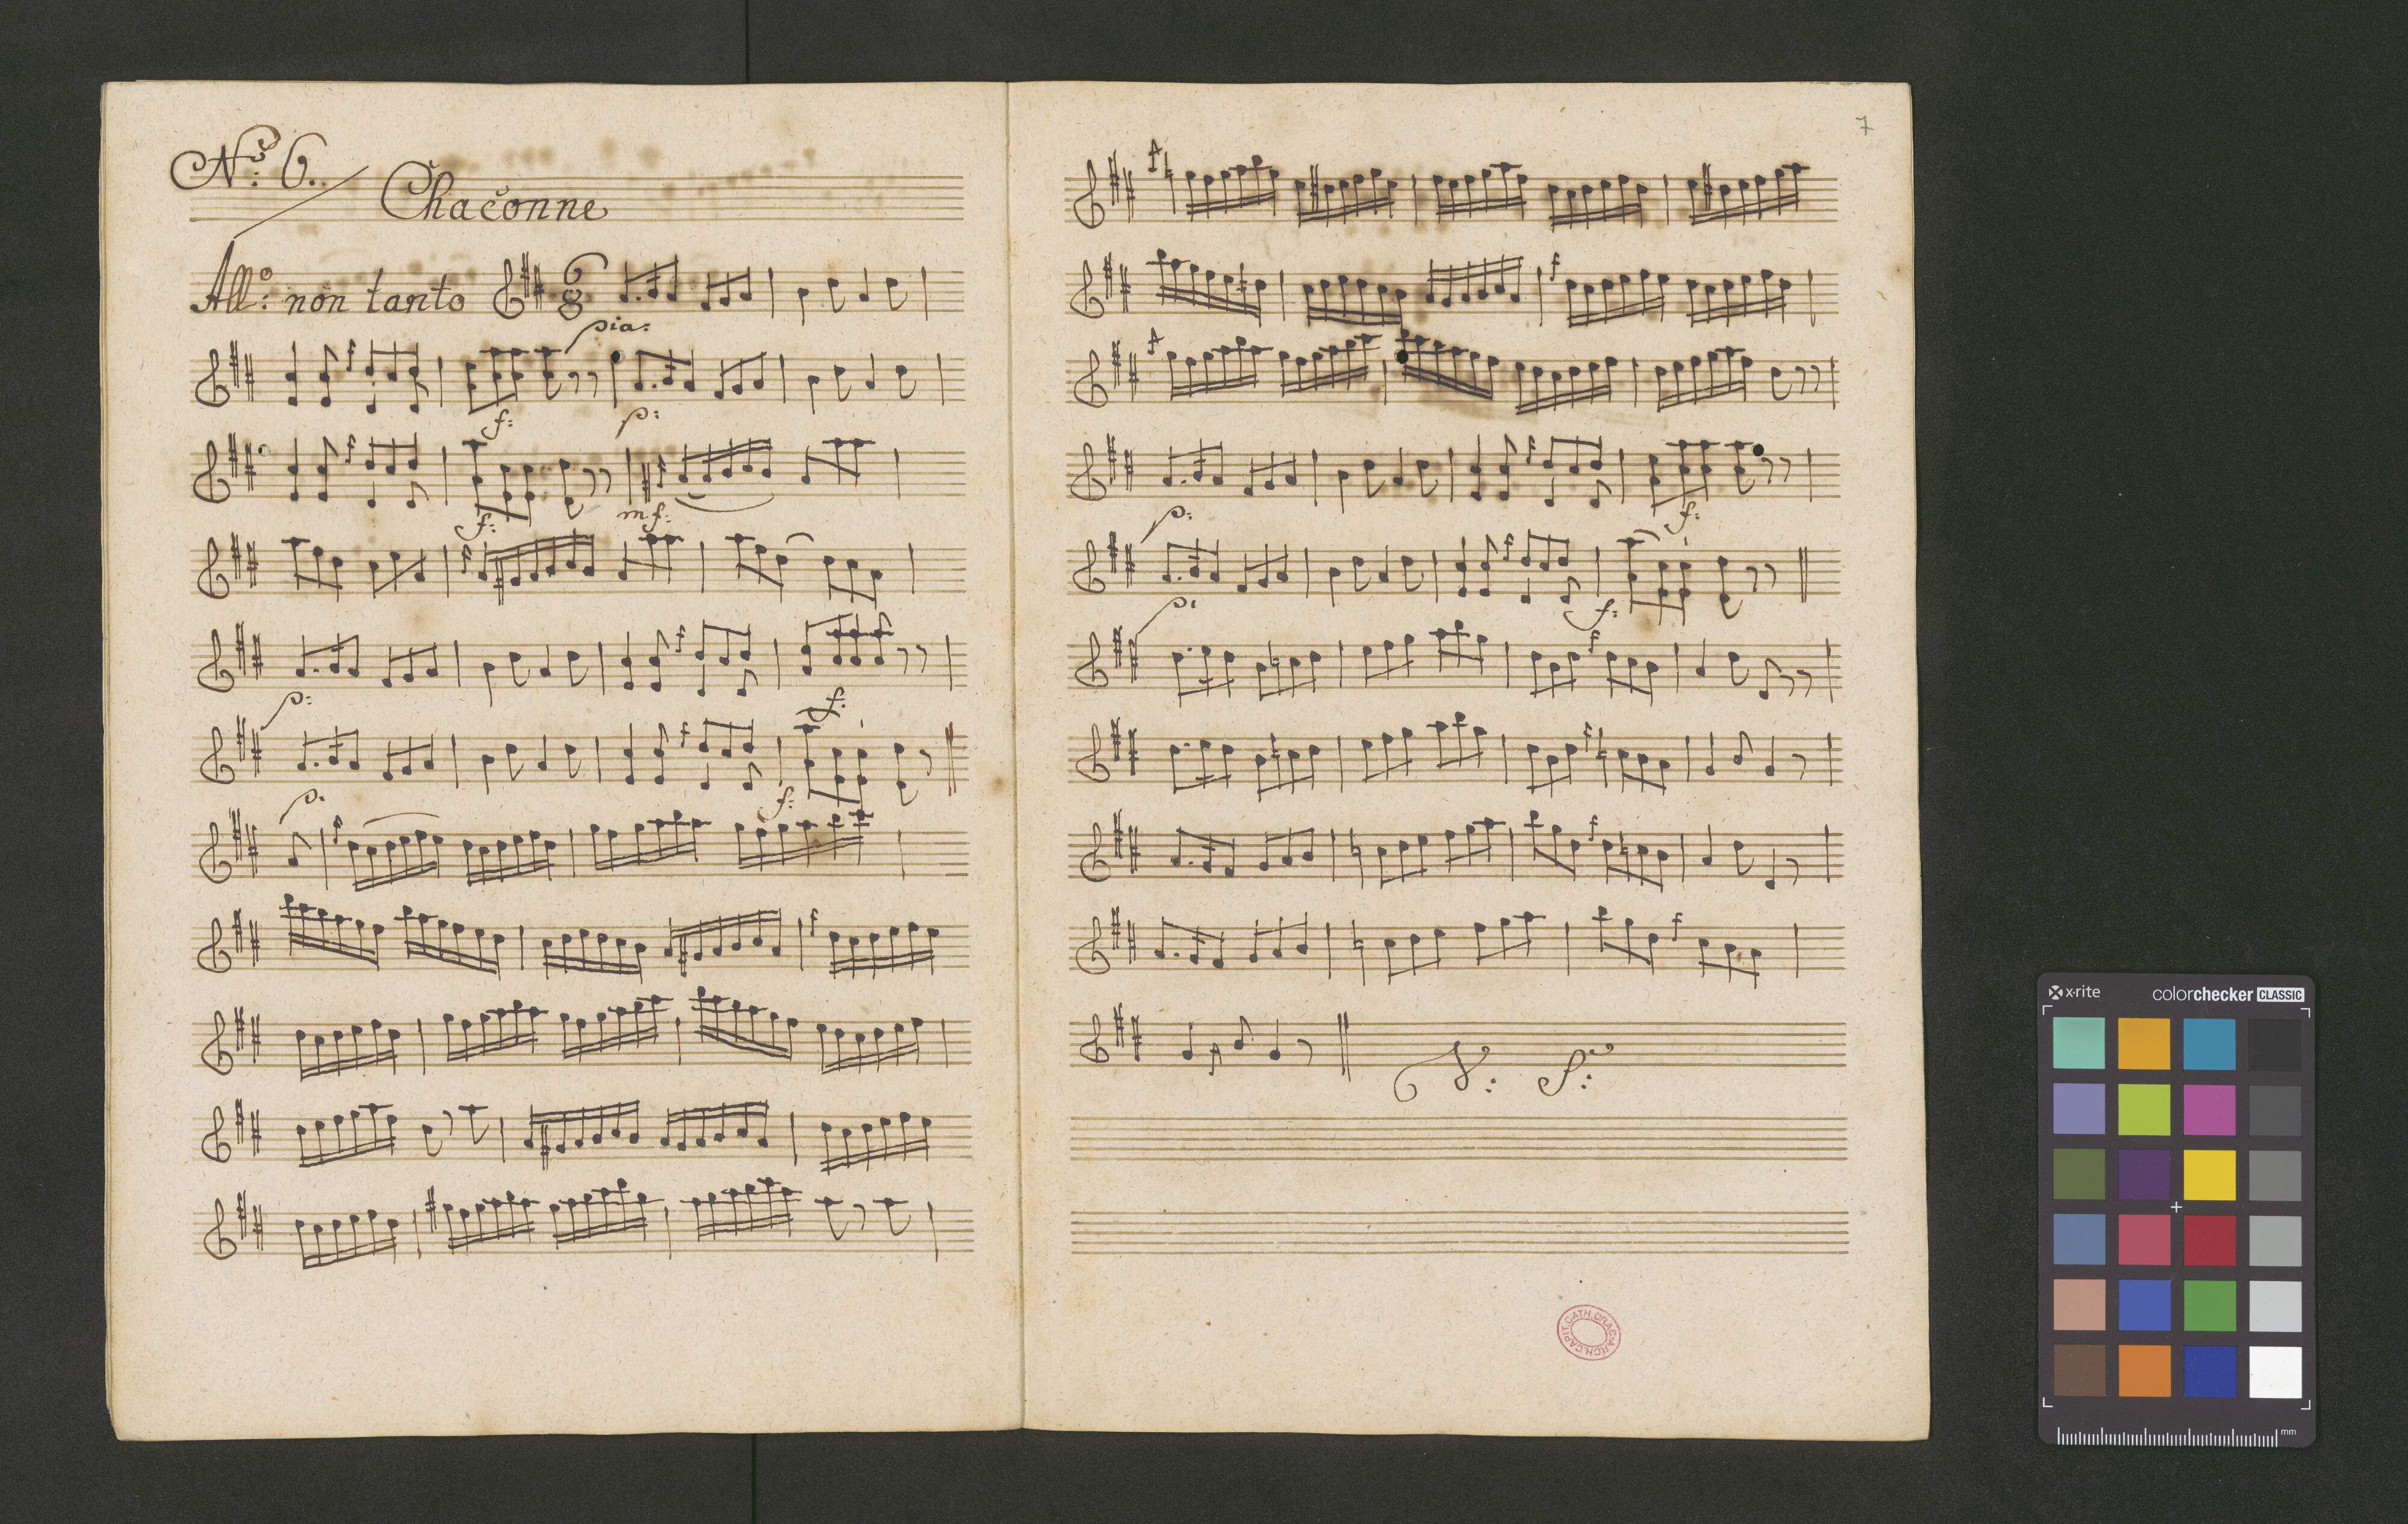 No: 6.
Chaconne
All:o non tanto
6
8
pia:
f:
p:
f:
mf:
p:
f:
p:
f:
7
p:
f:
p:
f:
V: S:
ARCH. CAPIT. CATH. CRAC.
x-rite
colorchecker CLASSIC
mm